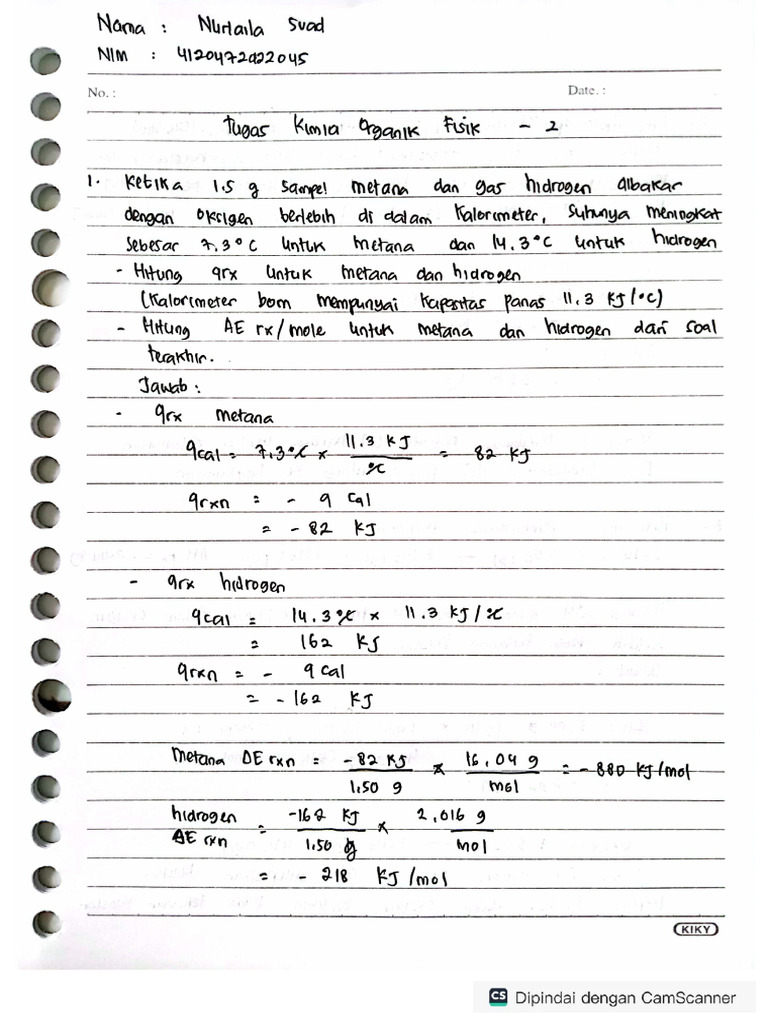 Nama : Nurlaila Suad
NIM : 4120472022045
No. :
Date. :
Tugas Kimia Organik Fisik - 2
1. Ketika 1.5 g sampel metana dan gas hidrogen dibakar
dengan oksigen berlebih di dalam kalorimeter, suhunya meningkat
sebesar 7.3°C untuk metana dan 14.3°C untuk hidrogen
- Hitung qrx untuk metana dan hidrogen
(Kalorimeter bom mempunyai kapasitas panas 11.3 KJ/°C)
- Hitung ΔE rx/mole untuk metana dan hidrogen dari soal
terakhir.
Jawab :
- qrx metana
qcal = 7.3°C × 11.3 KJ/°C = 82 KJ
qrxn = - q cal
= - 82 KJ
- qrx hidrogen
qcal = 14.3°C × 11.3 KJ/°C
= 162 KJ
qrxn = - q cal
= - 162 KJ
Metana ΔE rxn = -82 KJ/1.50 g × 16,04 g/mol = - 880 KJ/mol
hidrogen ΔE rxn = -162 KJ/1.50 g × 2,016 g/mol
= - 218 KJ/mol
KIKY
CS Dipindai dengan CamScanner